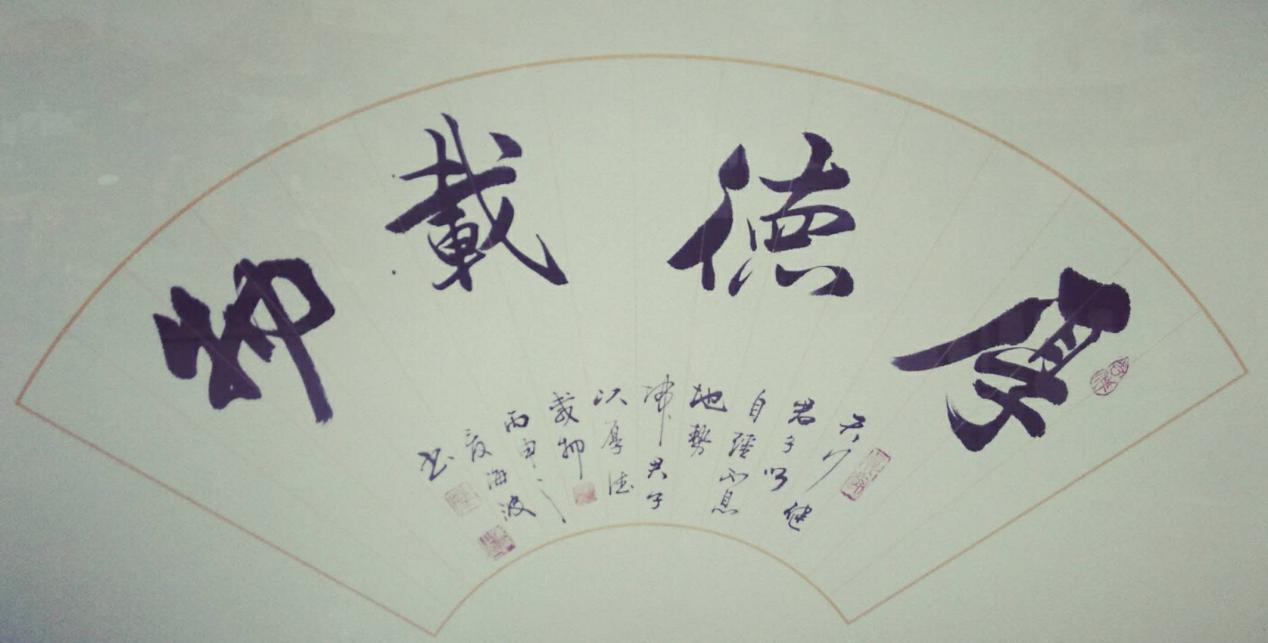 厚德載物
天行
健
君子以
自强不息
地势
坤君子
以厚德
载物
丙申之
夏海波
书